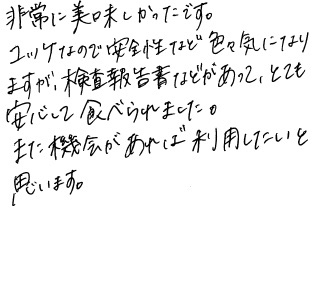 非常に美味しかったです。
ユッケなので安全性など色々気になり
ますが、検査報告書などがあって、とても
安心して食べられました。
また機会があれば利用したいと
思います。